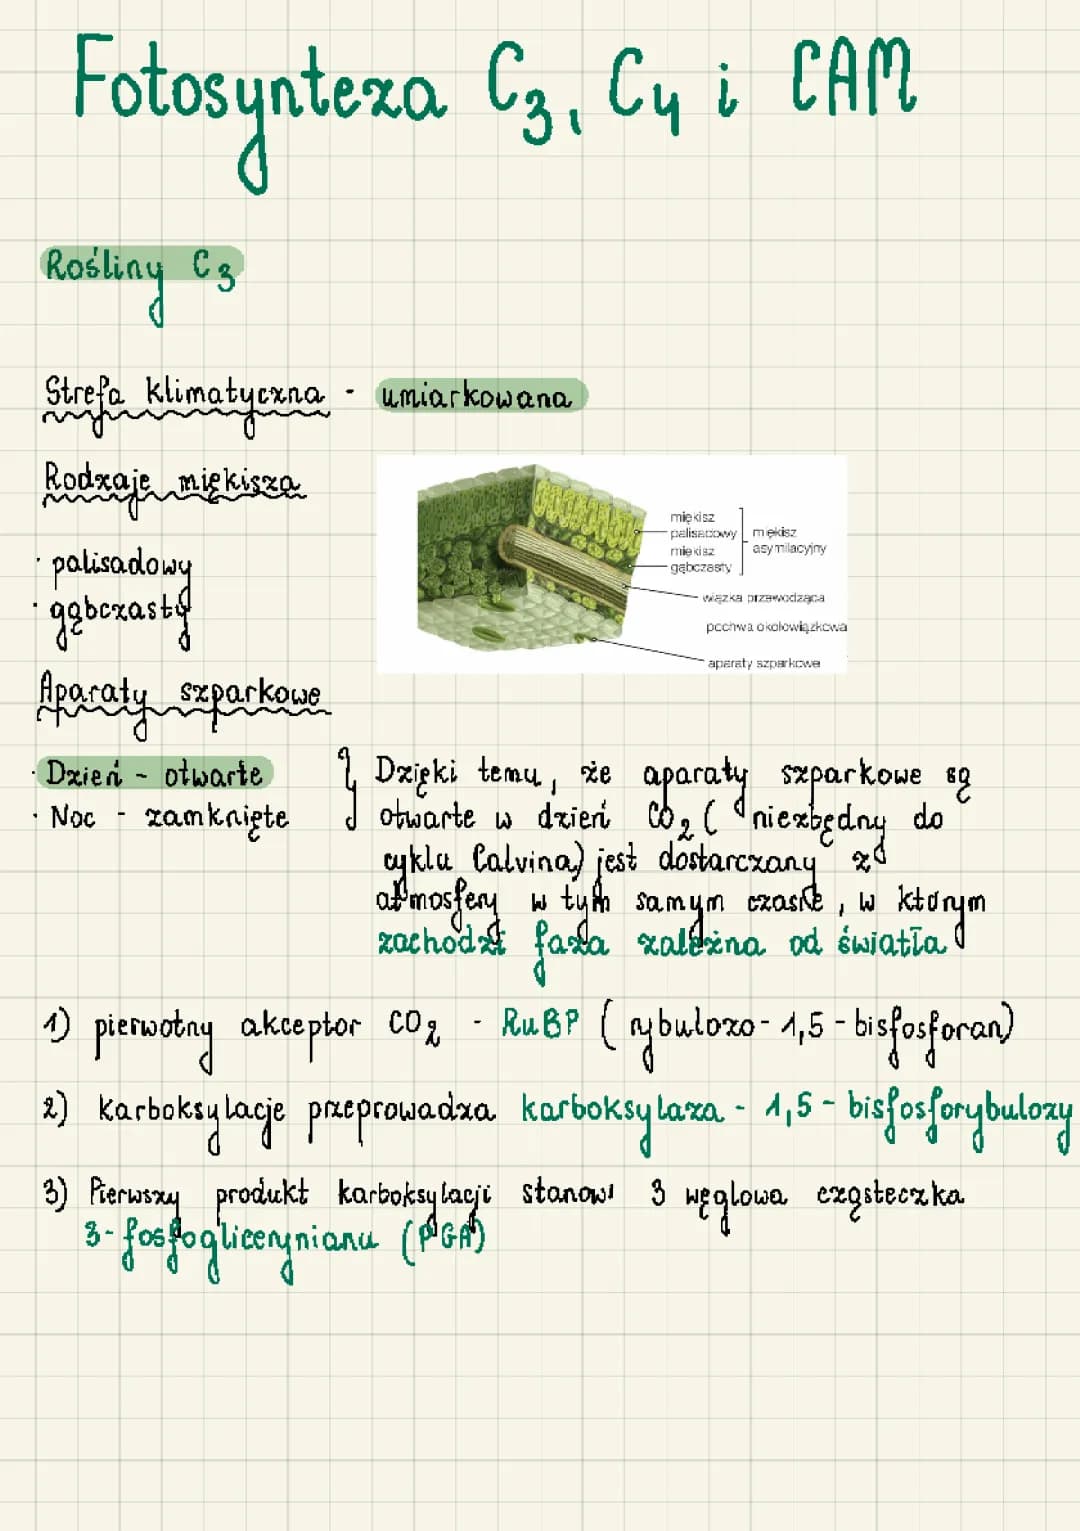 Fotosynteza C3, C4 i CAM
Rośliny C3
Strefa klimatyczna - umiarkowana
Rodzaje miękisza
· palisadowy
· gąbczasty
miękisz
palisadowy
miękisz
gąbczasty
miękisz
asymilacyjny
wiązka przewodząca
pochwa okołowiązkowa
aparaty szparkowe
Aparaty szparkowe
· Dzień - otwarte
· Noc - zamknięte
} Dzięki temu, że aparaty szparkowe są
otwarte w dzień CO2 ( niezbędny do
cyklu Calvina) jest dostarczany z
atmosfery w tym samym czasie, w którym
zachodzi faza zależna od światła
1) pierwotny akceptor CO2 - RuBP ( rybulozo-1,5-bisfosforan)
2) karboksylacje przeprowadza karboksylaza - 1,5 - bisfosforybulozy
3) Pierwszy produkt karboksylacji stanowi 3 węglowa cząsteczka
3-fosfoglicerynianu (PGA)